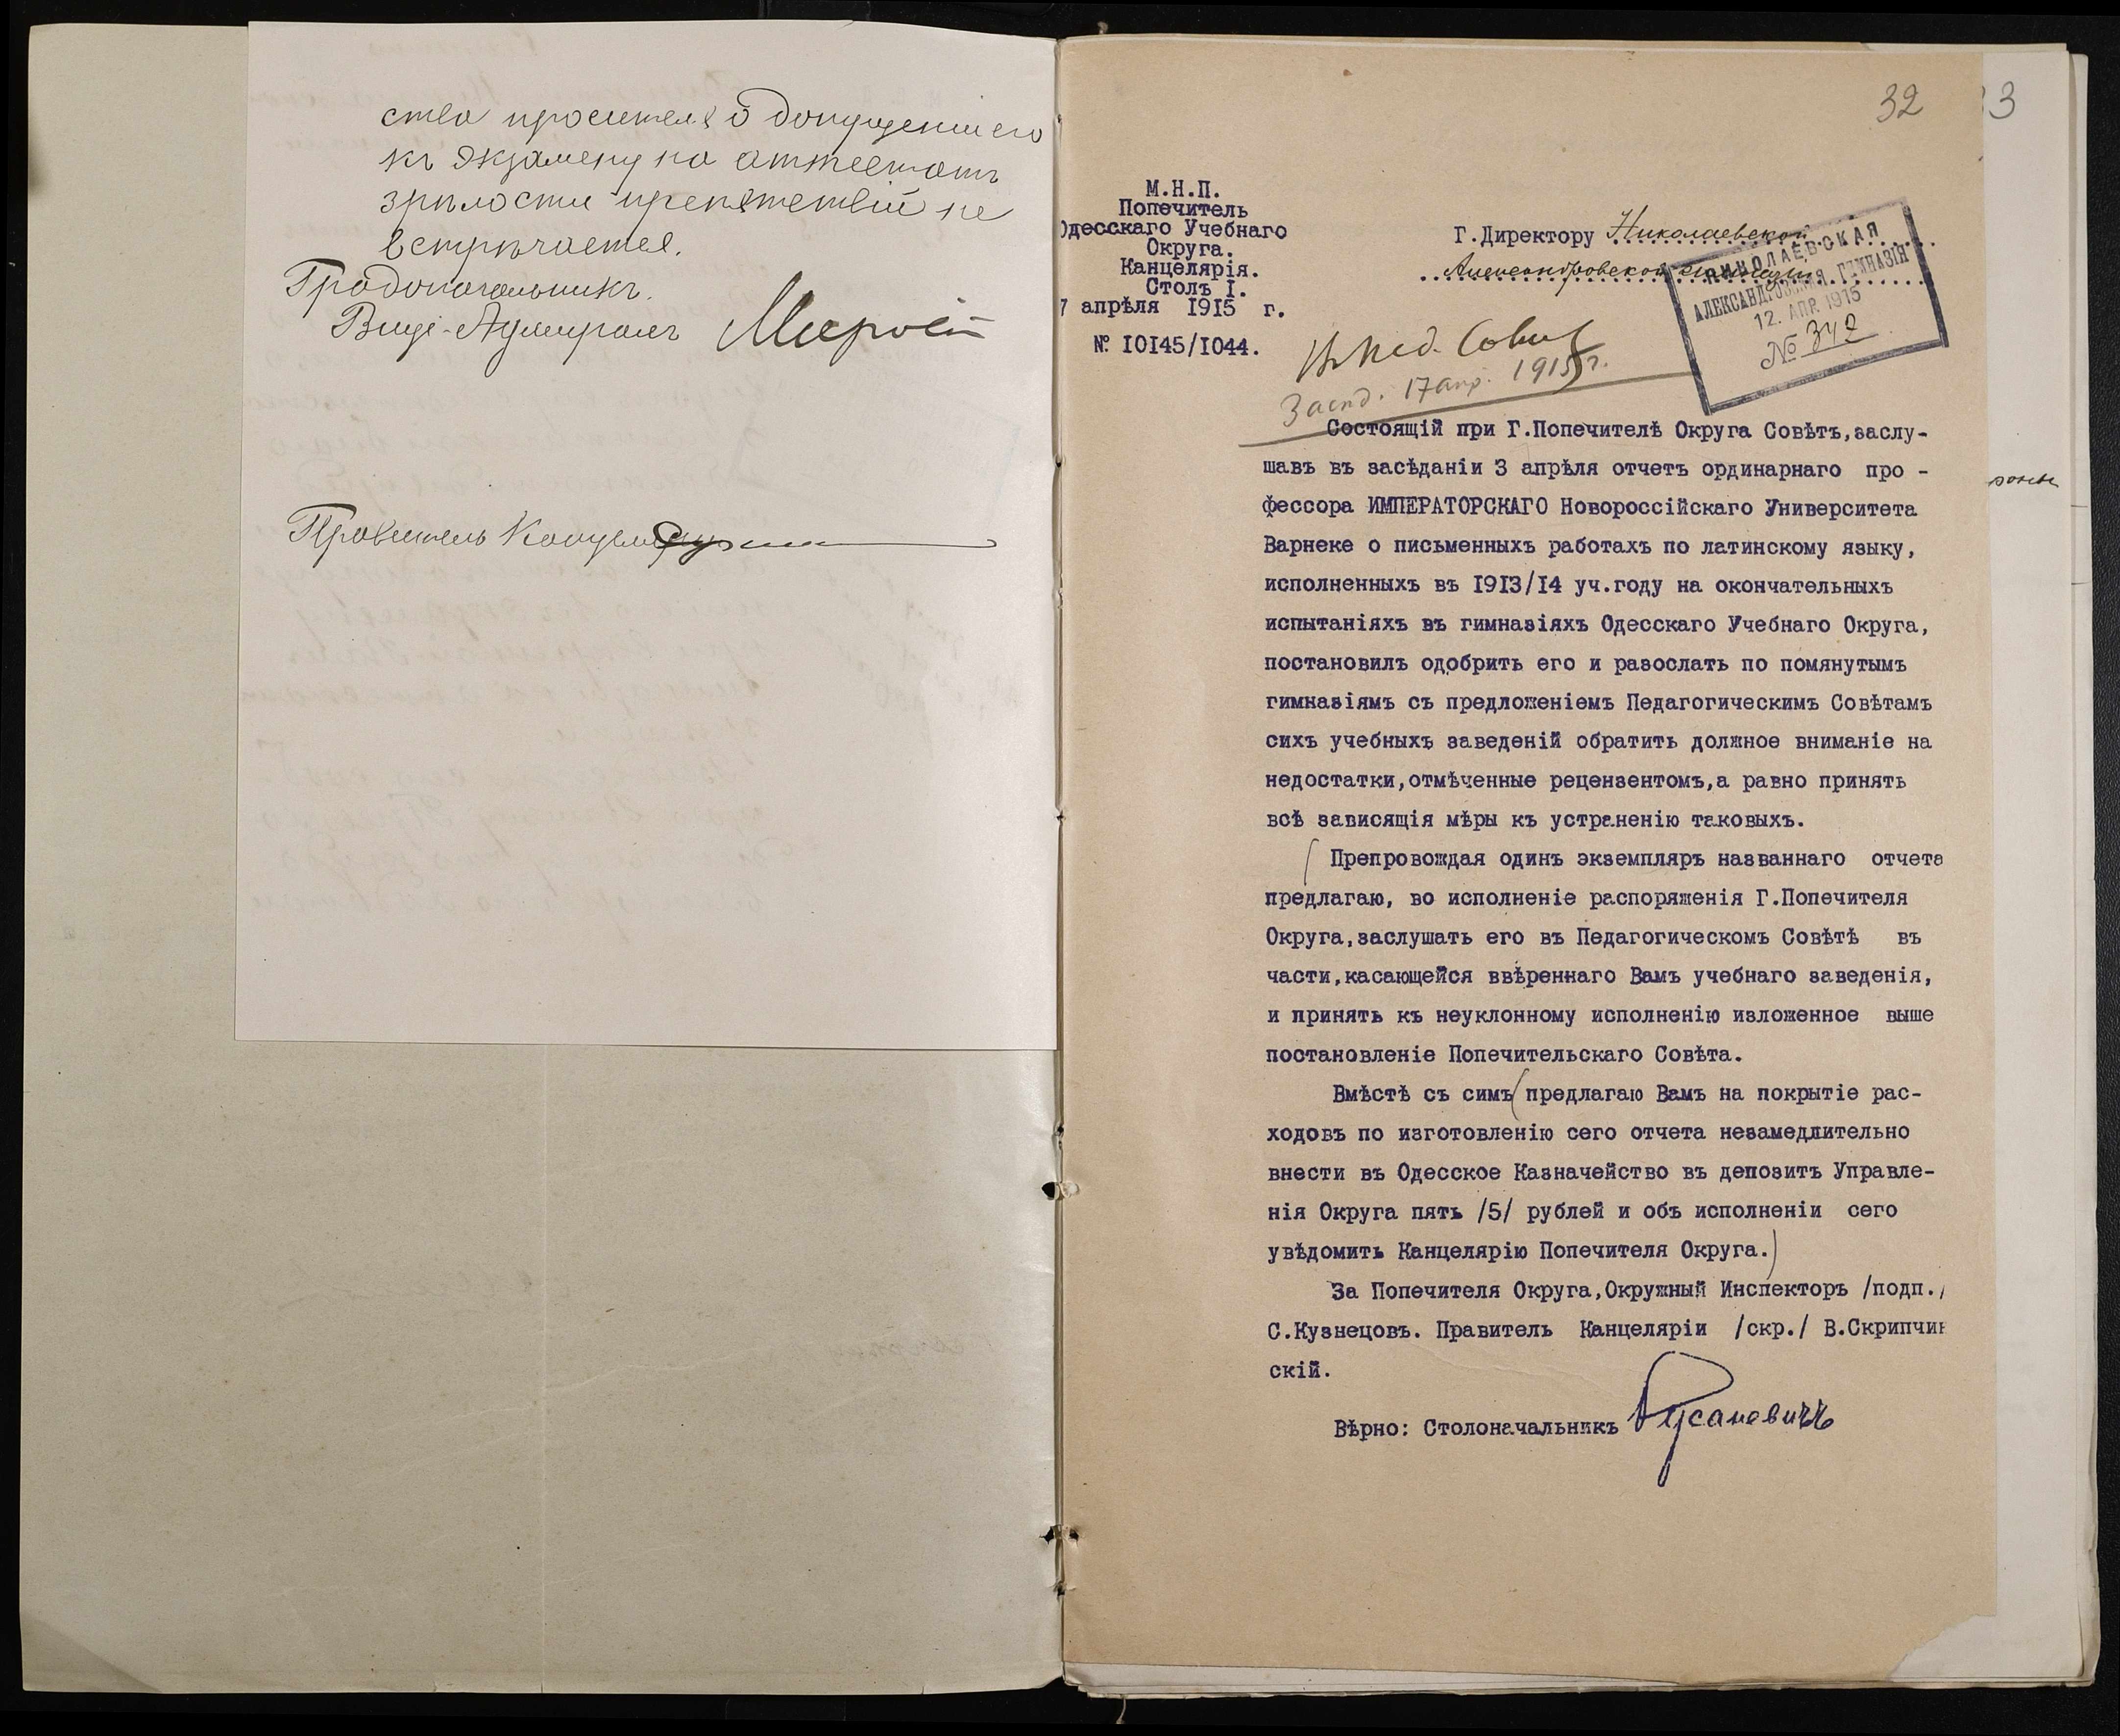 ства просителя о допущеніи его
къ экзамену на аттестатъ
зрѣлости препятствій не
встрѣчается.
Градоначальникъ,
Вице-Адмиралъ
Правитель Канцеляріи
32
33
М.Н.П.
Попечитель
Одесскаго Учебнаго
Округа.
Канцелярія.
Столъ I.
7 апрѣля 1915 г.
№ 10145/1044.
Г.Директору Николаевской
Александровской гимназіи
НИКОЛАЕВСКАЯ
АЛЕКСАНДРОВСКАЯ ГИМНАЗІЯ
12. АПР. 1915
№ 342
Въ Пед. Совѣт
Засѣд. 17 апр. 1915 г.
Состоящій при Г.Попечителѣ Округа Совѣтъ,заслу-
шавъ въ засѣданіи 3 апрѣля отчетъ ординарнаго про -
фессора ИМПЕРАТОРСКАГО Новороссійскаго Университета
Варнеке о письменныхъ работахъ по латинскому языку,
исполненныхъ въ 1913/14 уч.году на окончательныхъ
испытаніяхъ въ гимназіяхъ Одесскаго Учебнаго Округа,
постановилъ одобрить его и разослать по помянутымъ
гимназіямъ съ предложеніемъ Педагогическимъ Совѣтамъ
сихъ учебныхъ заведеній обратить должное вниманіе на
недостатки,отмѣченные рецензентомъ,а равно принять
всѣ зависящія мѣры къ устраненію таковыхъ.
Препровождая одинъ экземпляръ названнаго отчета
предлагаю, во исполненіе распоряженія Г.Попечителя
Округа,заслушать его въ Педагогическомъ Совѣтѣ въ
части,касающейся ввѣреннаго Вамъ учебнаго заведенія,
и принять къ неуклонному исполненію изложенное выше
постановленіе Попечительскаго Совѣта.
Вмѣстѣ съ симъ предлагаю Вамъ на покрытіе рас-
ходовъ по изготовленію сего отчета незамедлительно
внести въ Одесское Казначейство въ депозитъ Управле-
нія Округа пять /5/ рублей и объ исполненіи сего
увѣдомить Канцелярію Попечителя Округа.)
За Попечителя Округа,Окружный Инспекторъ /подп./
С.Кузнецовъ. Правитель Канцеляріи /скр./ В.Скрипчин
скій.
Вѣрно: Столоначальникъ Русаневичъ